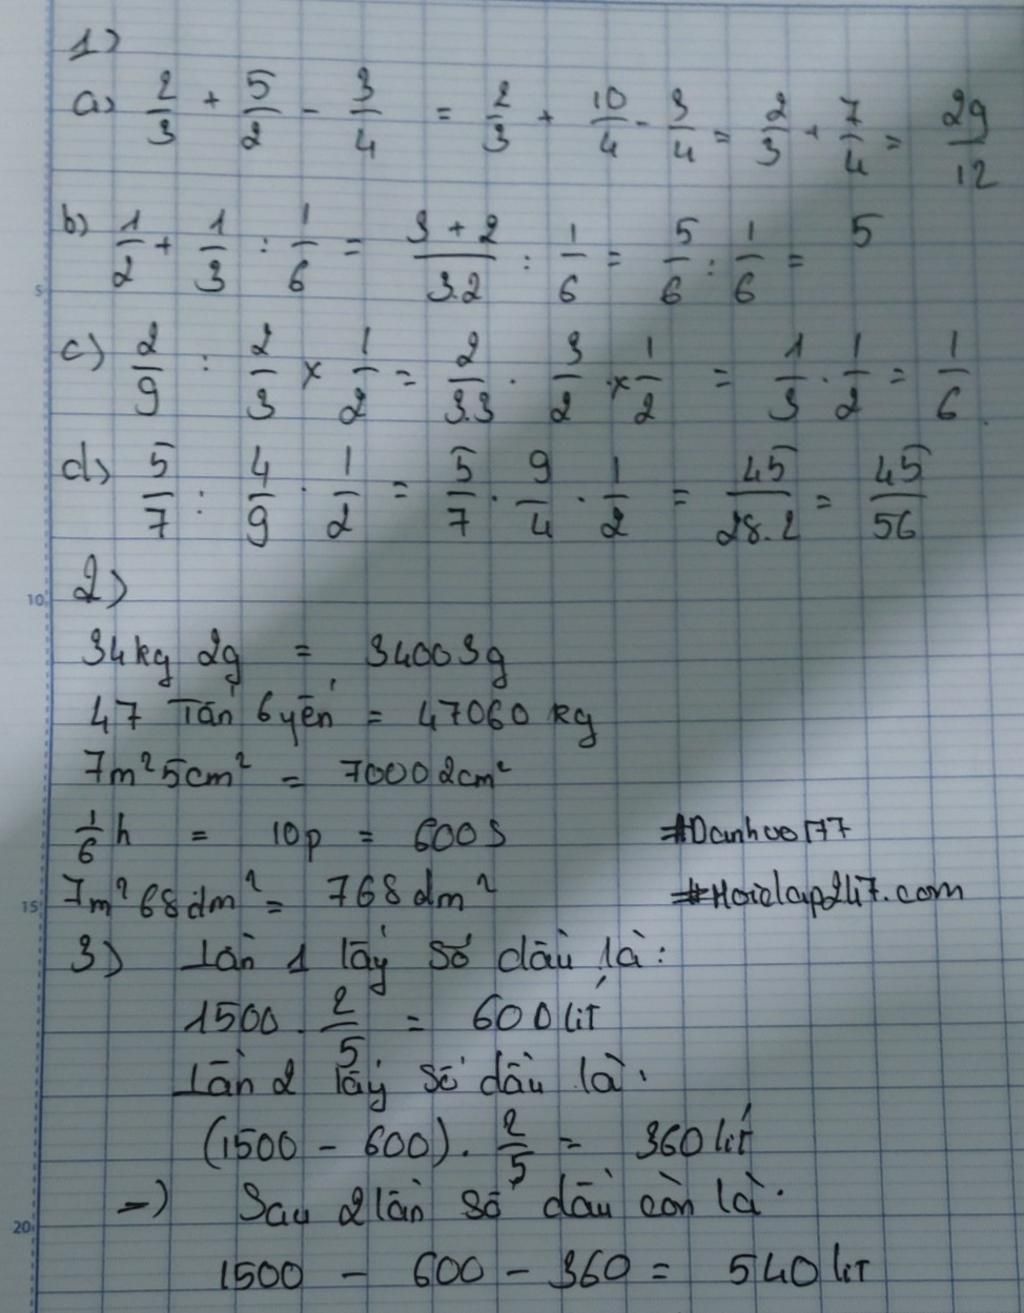 1)
a) 2/3 + 5/2 - 3/4 = 2/3 + 10/4 - 3/4 = 2/3 + 7/4 = 29/12
b) 1/2 + 1/3 : 1/6 = (3 + 2)/(3.2) : 1/6 = 5/6 : 1/6 = 5
c) 2/9 : 2/3 x 1/2 = 2/(3.3) . 3/2 x 1/2 = 1/3 . 1/2 = 1/6
d) 5/7 : 4/9 . 1/2 = 5/7 . 9/4 . 1/2 = 45/(28.2) = 45/56
2)
34kg 2g = 34003g
47 Tấn 6 yến = 47060 kg
7m² 5cm² = 70002cm²
1/6 h = 10p = 600s #Danhoo177
7m² 68dm² = 768dm² #Hoidap247.com
3) Lần 1 lấy số dầu là:
1500 . 2/5 = 600 lít
Lần 2 lấy số dầu là:
(1500 - 600) . 2/5 = 360 lít
-) Sau 2 lần số dầu còn là:
1500 - 600 - 360 = 540 lít